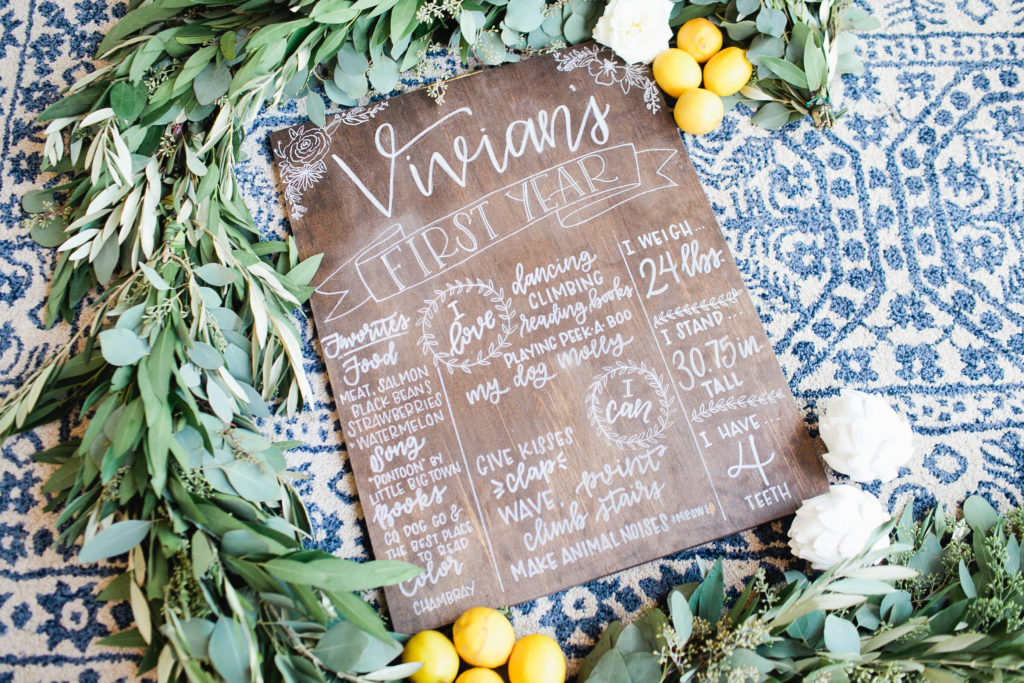 Vivian's
FIRST YEAR
Favorites
Food
MEAT, SALMON
BLACK BEANS
STRAWBERRIES
WATERMELON
Song
"PONTOON" BY
LITTLE BIG TOWN
Books
GO DOG GO &
THE BEST PLACE
TO READ
Color
CHAMBRAY
I
love
dancing
CLIMBING
reading books
PLAYING PEEK-A-BOO
my dog Molly
I
can
GIVE KISSES
clap
WAVE
point
climb stairs
MAKE ANIMAL NOISES
I WEIGH...
24 lbs.
I STAND...
30.75 in
TALL
I HAVE...
4
TEETH